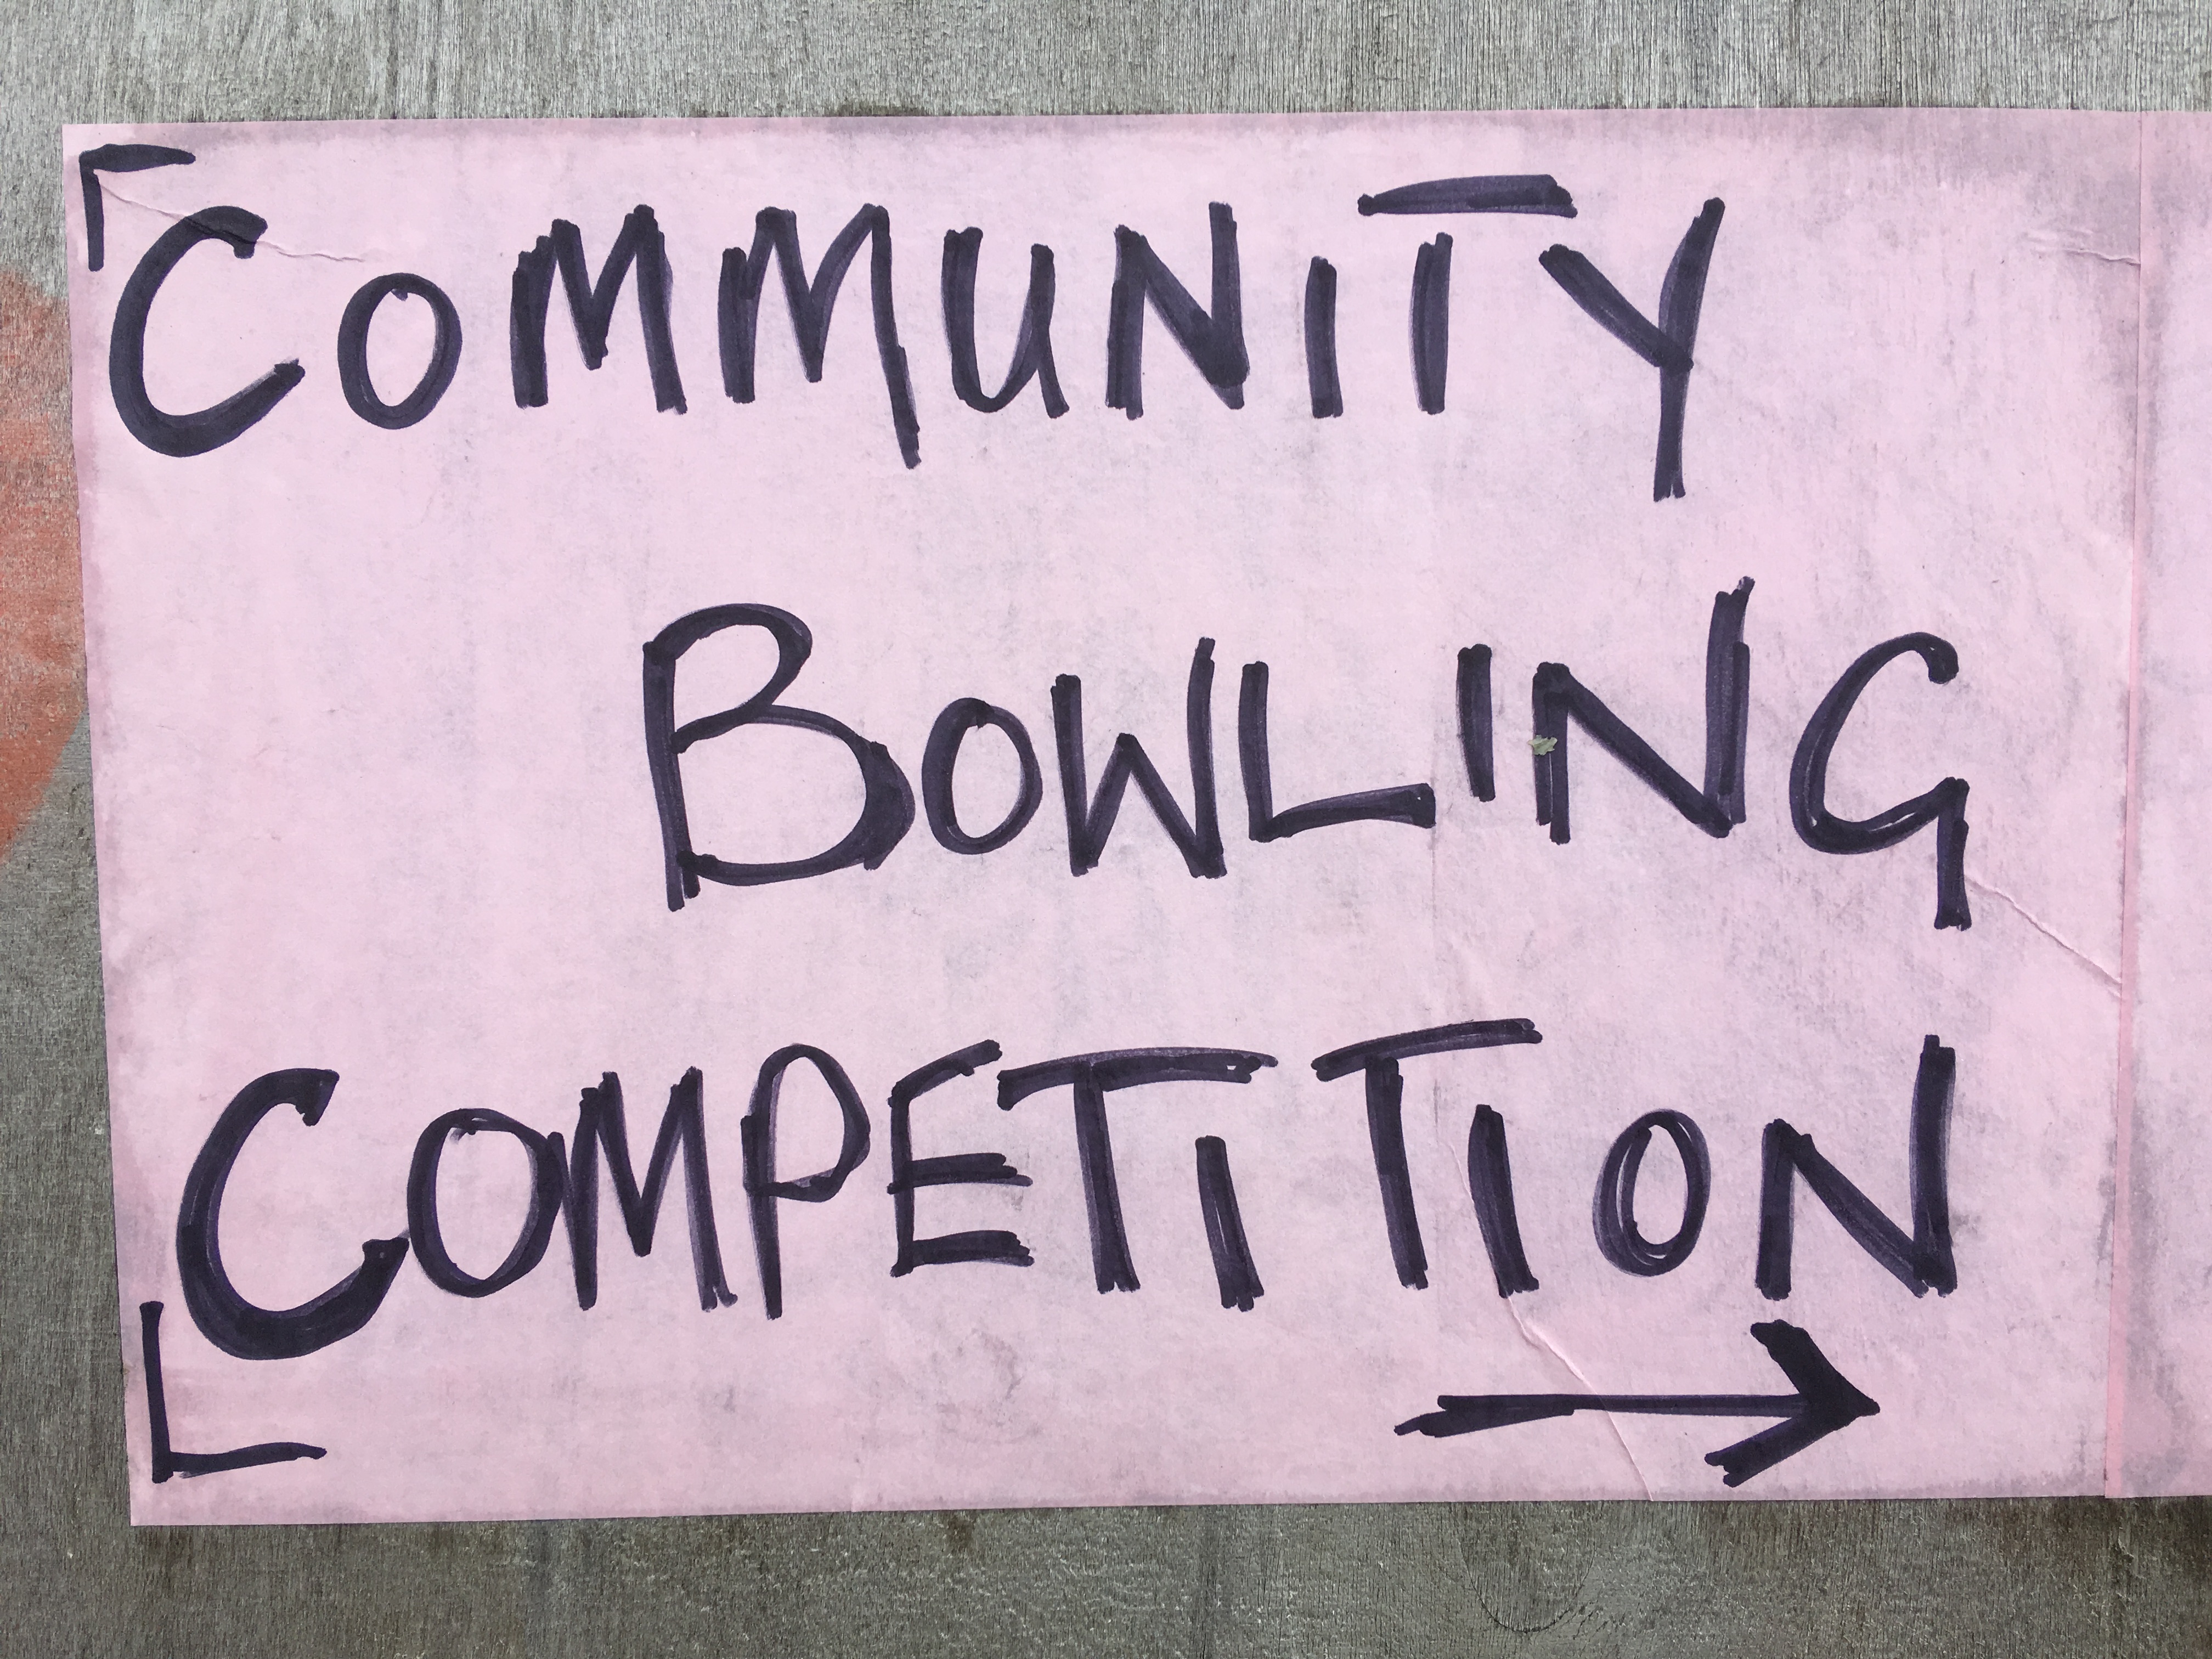 COMMUNITY
BOWLING
COMPETITION
→